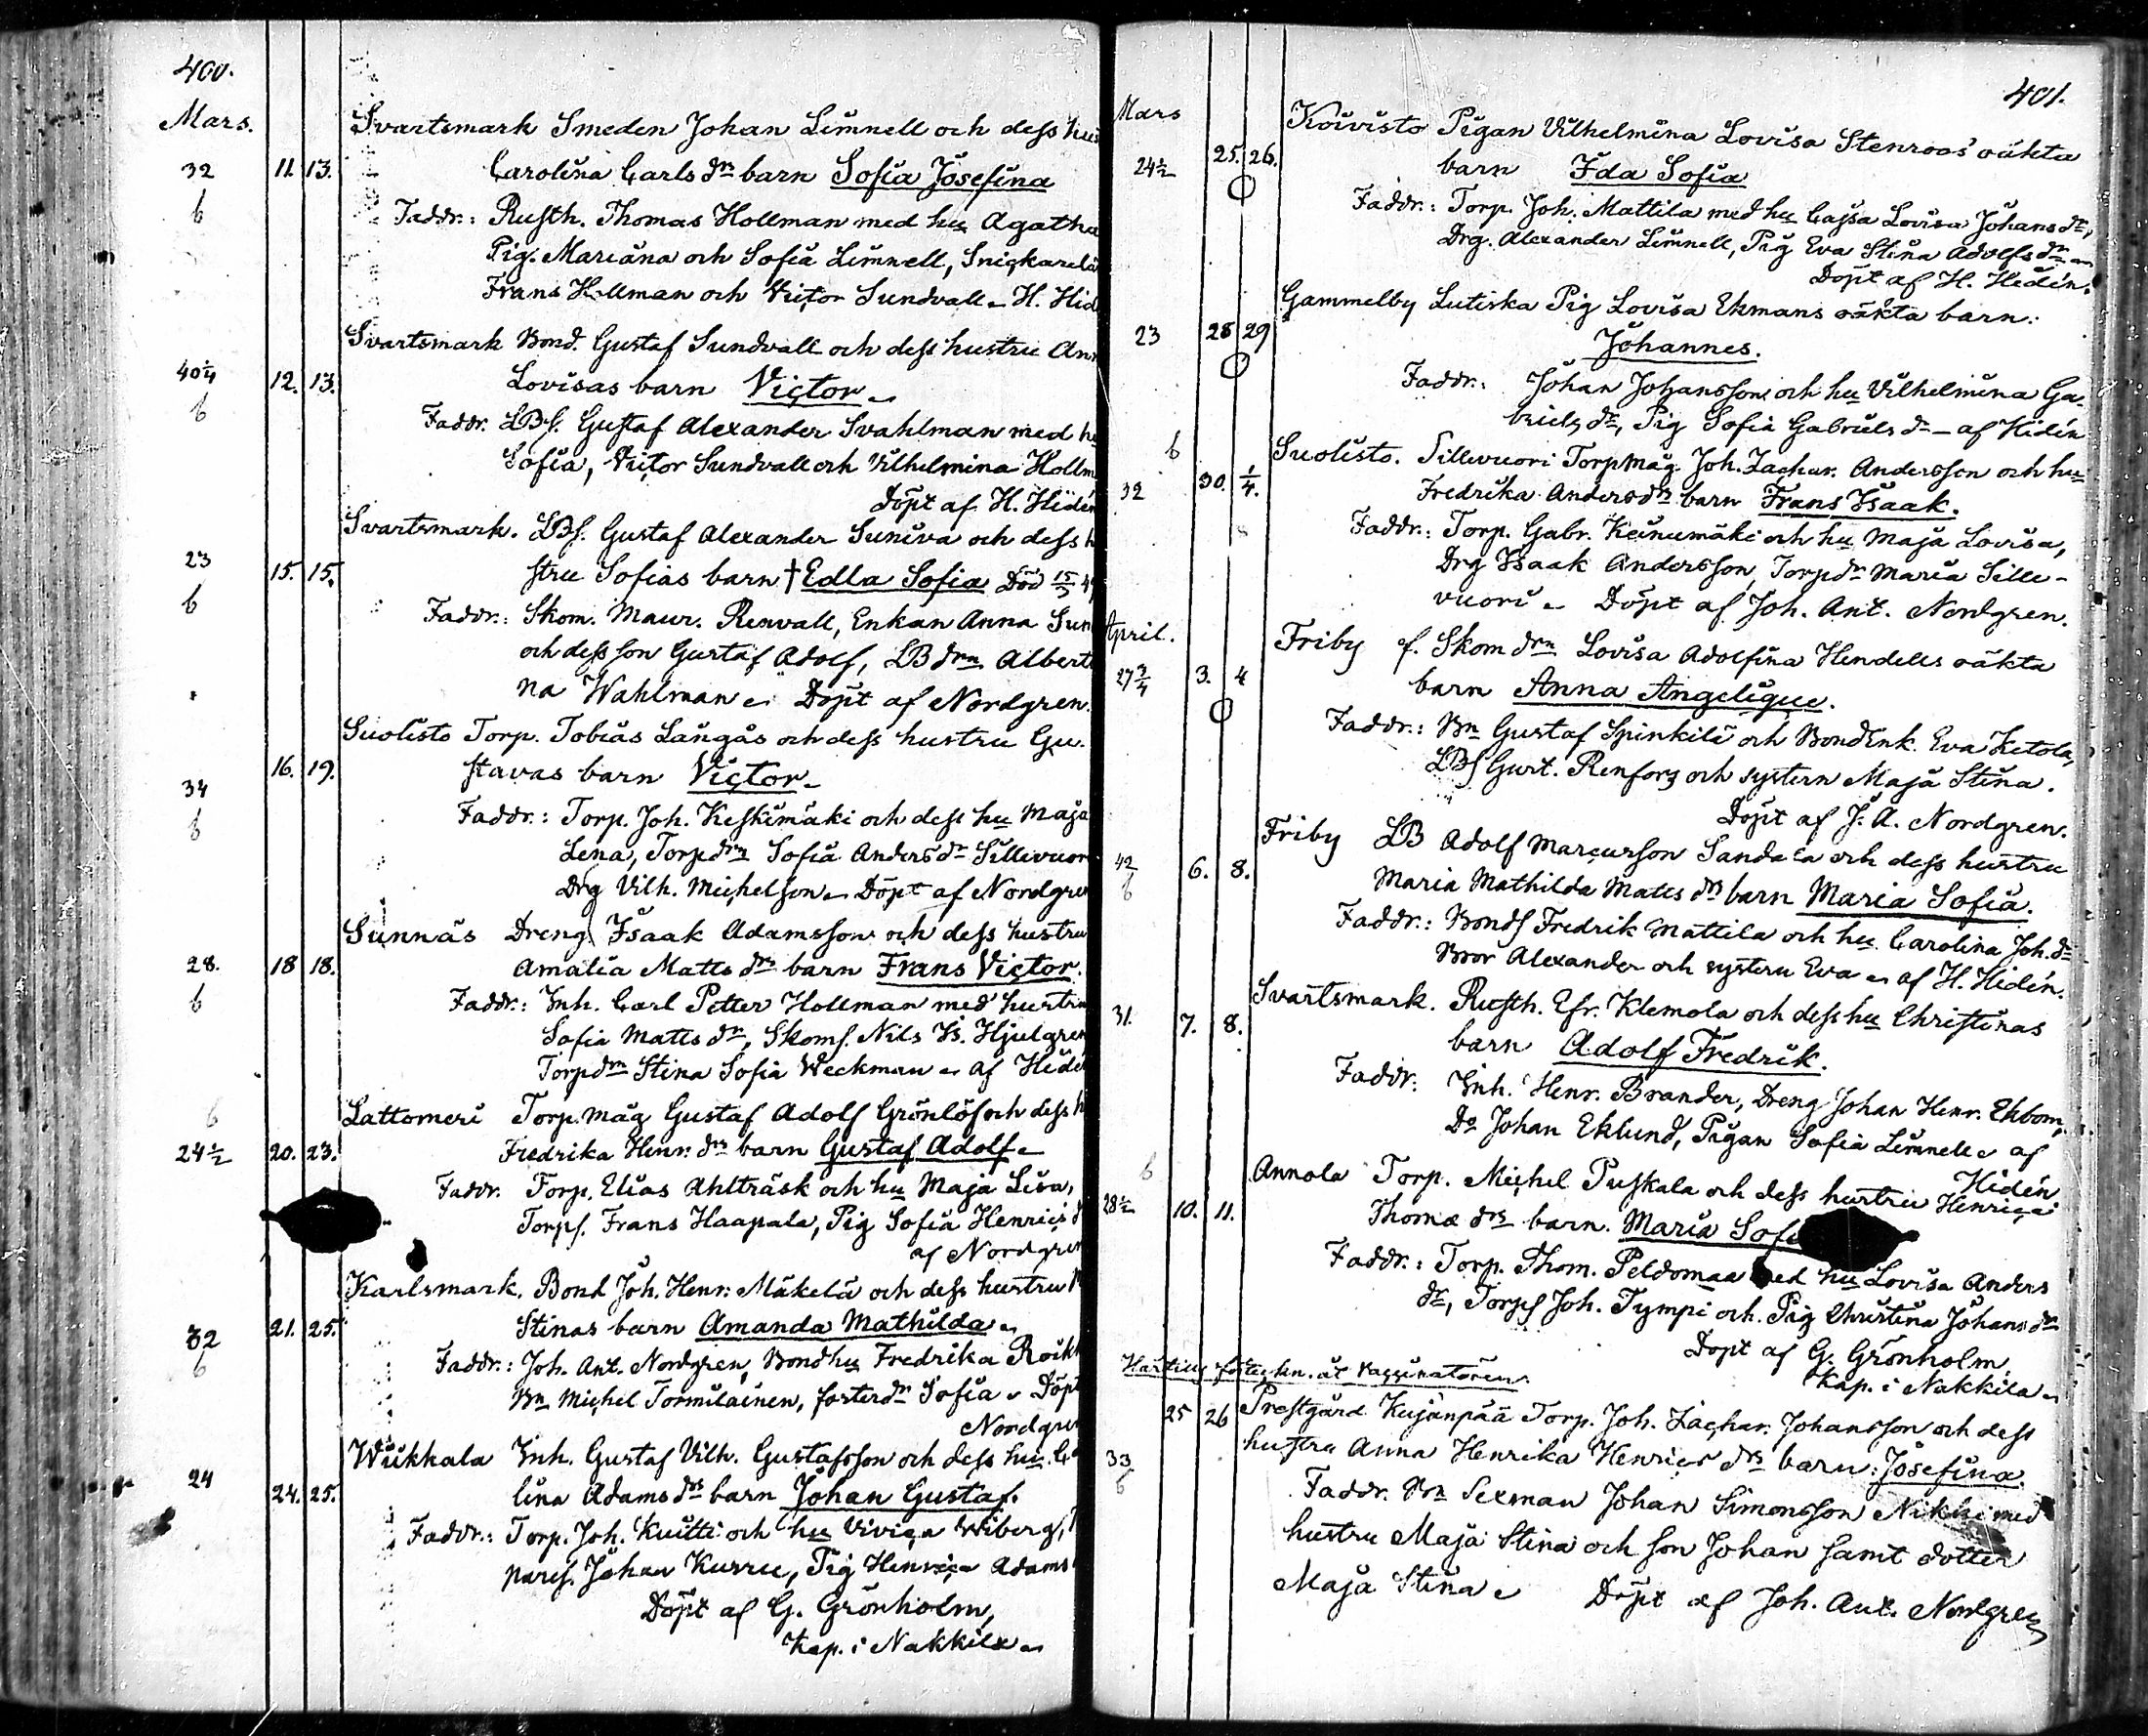 400.
Mars.
Svartsmark Smeden Johan Limnell och dess hus
32 11. 13. Carolina Carls drs barn Sofia Josefina
b Faddr.: Rusth. Thomas Hollman med hu Agatha
Pig. Mariana och Sofia Limnell, Snickarelä
Frans Hollman och Victor Sundvall. H. Hid
Svartsmark Bond. Gustaf Sundvall och dess hustru Ann
40 1/4 12. 13. Lovisas barn Victor.
b Faddr. LBs. Gustaf Alexander Svahlman med hu
Sofia, Victor Sundvall och Vilhelmina Hollm
Döpt af H. Hidén
Svartsmark. LBs. Gustaf Alexander Suniva och dess h
23 15. 15. stru Sofias barn † Edla Sofia Död 15/3 49
b Faddr.: Skom. Maur. Renvall, Enkan Anna Sun
och dess son Gustaf Adolf, LB drn Alberti
na Wahlman. Döpt af Nordgren.
Suolisto Torp. Tobias Långås och dess hustru Gu-
34 16. 19. stavas barn Victor.
b Faddr.: Torp. Joh. Keskimäki och dess hu Maja
Lena, Torpdrn Sofia Anders dr Sillivuor
Drg Vilh. Michelson. Döpt af Nordgren
Sunnäs Dreng Isaak Adamsson och dess hustru
28. 18 18. Amalia Matts drs barn Frans Victor.
b Faddr.: Inh. Carl Petter Hollman med hustru
Sofia Matts dr, Skoms. Nils Is. Hjulgren
Torpdrn Stina Sofia Weckman. af Hidé
b Lattomeri Torp.måg Gustaf Adolf Grönlöf och dess h
24 1/2 20. 23. Fredrika Henr. drs barn Gustaf Adolf.
Faddr. Torp. Elias Ahlträsk och hu Maja Lisa,
Torps. Frans Haapala, Pig Sofia Henrics d
af Nordgren
Karlsmark. Bond Joh. Henr. Mäkelä och dess hustru M
32 21. 25. Stinas barn Amanda Mathilda.
b Faddr.: Joh. Ant. Nordgren, Bondhu Fredrika Roikk
Bn Michel Tormilainen, fosterdr Sofia. Döpt
Nordgren
Wiikkala Inh. Gustaf Vilh. Gustafsson och dess hu. Ca
24 24. 25. lina Adams drs barn Johan Gustaf.
Faddr.: Torp. Joh. Kuitti och hu Vivica Wiberg, T
pares. Johan Kurru, Pig Henrica Adams
Döpt af G. Grönholm,
Kap. i Nakkila.
401.
Mars
Koivisto Pigan Vilhelmina Lovisa Stenroos' oäkta
24 1/2 25. 26. barn Ida Sofia
Faddr.: Torp. Joh. Mattila med hu Cajsa Lovisa Johans dr,
Drg. Alexander Limnell, Pig Eva Stina Adolfs dr.
Döpt af H. Hedén.
Gammelby Lutiska Pig Lovisa Ekmans oäkta barn:
23 28 29 Johannes.
Faddr. Johan Johansson och hu Vilhelmina Ga-
briels dr, Pig Sofia Gabriels dr - af Hidén
b Suolisto. Sillivuori Torpmåg Joh. Zachar. Andersson och hu
32 30. 1/4. Fredrika Anders drs barn Frans Isaak.
Faddr.: Torp. Gabr. Keinumäki och hu Maja Lovisa,
Drg Isaak Andersson, Torpdr Maria Sille-
vuori. Döpt af Joh. Ant. Nordgren.
April.
Friby f. Skom drn Lovisa Adolfina Hendells oäkta
27 3/4 3. 4 barn Anna Angelique.
Faddr.: Bn Gustaf Spinkilä och BondEnk. Eva Ketola,
LBs Gust. Renfors och systern Maja Stina.
Döpt af J. A. Nordgren.
Friby LB Adolf Marcusson Sandala och dess hustru
42 6. 8. Maria Mathilda Matts drs barn Maria Sofia.
b Faddr.: Bonds Fredrik Mattila och hu Carolina Joh. dr
Bror Alexander och systern Eva. af H. Hidén.
Svartsmark. Rusth. Efr. Klemola och dess hu Christinas
31. 7. 8. barn Adolf Fredrik.
Faddr: Inh. Henr. Brander, Dreng Johan Henr. Ekbom,
Do Johan Eklund, Pigan Sofia Limnell. af
Hidén
b Annola Torp. Michel Puskala och dess hustru Henrica
28 1/2 10. 11. Thomæ drs barn. Maria Sofi
Faddr.: Torp. Thom. Peldomaa med hu Lovisa Anders
dr, Torps Joh. Tympi och Pig Christina Johans dr
Döpt af G. Grönholm,
Kap. i Nakkila.
Hartill förteckn. åt Vaccinatören.
25 26 Prestgård Kujanpää Torp. Joh. Zachar. Johansson och dess
33 hustru Anna Henrika Henrics drs barn: Josefina.
b Faddr. Bn Sexman Johan Simonsson Nikki med
hustru Maja Stina och son Johan samt dotter
Maja Stina. Döpt af Joh. Ant. Nordgren